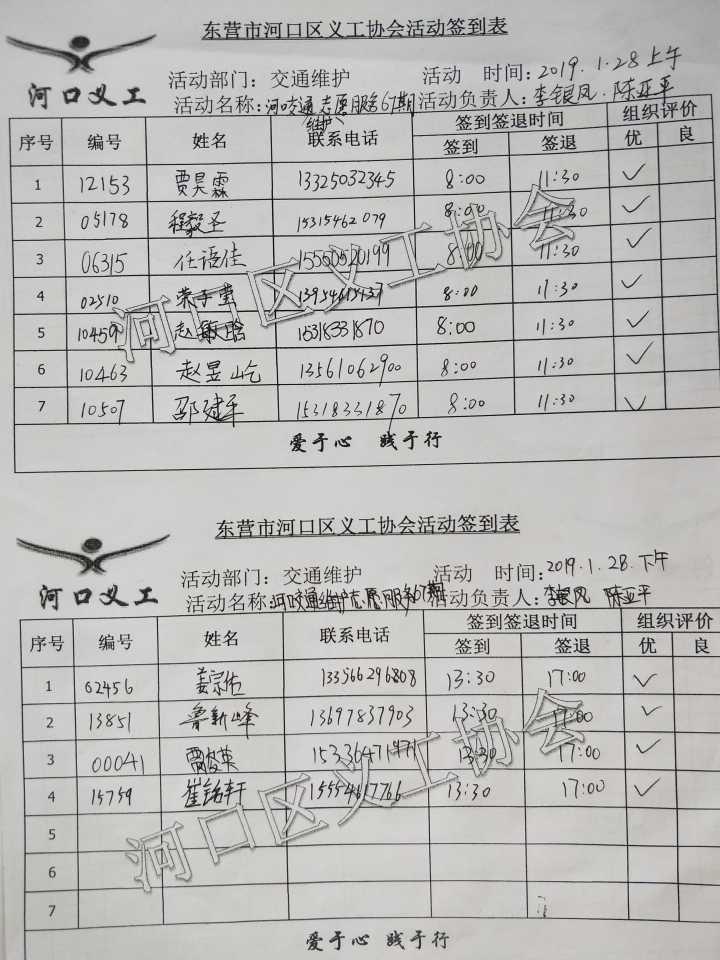 东营市河口区义工协会活动签到表
河口义工
活动部门：交通维护 活动 时间：2019.1.28上午
活动名称：河口交通维护志愿服务67期 活动负责人：李银凤、陈亚平
序号 编号 姓名 联系电话 签到签退时间 组织评价
签到 签退 优 良
1 12153 贾昊霖 13325032345 8:00 11:30 ✓
2 05178 程毅圣 15315462079 8:00 11:30 ✓
3 06315 任语佳 15550520199 8:00 11:30 ✓
4 02510 荣子莹 8:00 11:30 ✓
5 10459 赵 晗 15318331870 8:00 11:30 ✓
6 10463 赵昱屹 13561062900 8:00 11:30 ✓
7 10507 邵建平 15318331870 8:00 11:30 ✓
爱于心 践于行
河口区义工协会
东营市河口区义工协会活动签到表
河口义工
活动部门：交通维护 活动 时间：2019.1.28.下午
活动名称：河口交通维护志愿服务67期 活动负责人：李银凤 陈亚平
序号 编号 姓名 联系电话 签到签退时间 组织评价
签到 签退 优 良
1 02456 姜宗佑 133566296808 13:30 17:00 ✓
2 13851 鲁新峰 13697837903 13:30 17:00 ✓
3 00041 贾俊英 13:30 17:00 ✓
4 15759 崔铭轩 15554617766 13:30 17:00 ✓
5
6
7
爱于心 践于行
河口区义工协会